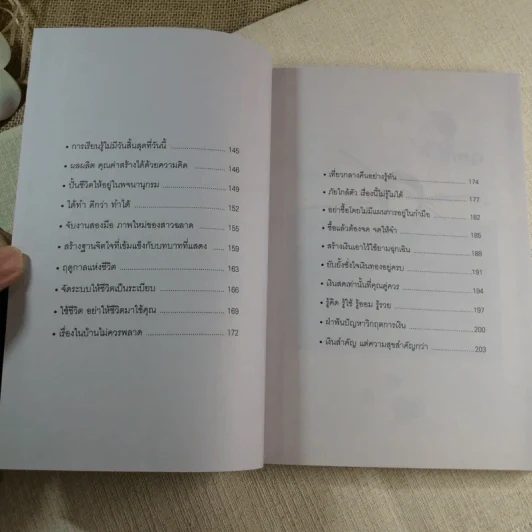 • การเรียนรู้ไม่มีวันสิ้นสุดที่วันนี้ ........................ 145
• ผลผลิต คุณค่าสร้างได้ด้วยความคิด ........................ 146
• ปั้นชีวิตให้อยู่ในพจนานุกรม ........................ 149
• ได้ทำ ดีกว่า ทำได้ ........................ 152
• จับงานสองมือ ภาพใหม่ของสาวฉลาด ........................ 155
• สร้างฐานจิตใจที่เข้มแข็งกับบทบาทที่แสดง ........................ 159
• ฤดูกาลแห่งชีวิต ........................ 163
• จัดระบบให้ชีวิตเป็นระเบียบ ........................ 166
• ใช้ชีวิต อย่าให้ชีวิตมาใช้คุณ ........................ 169
• เรื่องในบ้านไม่ควรพลาด ........................ 172
• เที่ยวกลางคืนอย่างรู้ทัน ........................ 174
• ภัยใกล้ตัว เรื่องนี้ไม่รู้ไม่ได้ ........................ 177
• อย่าซื้อโดยไม่มีแผนการอยู่ในกำมือ ........................ 182
• ซื้อแล้วต้องจด จดให้จำ ........................ 185
• สร้างเงินเอาไว้ใช้ยามฉุกเฉิน ........................ 188
• ยับยั้งชั่งใจเงินทองอยู่ครบ ........................ 191
• เงินสดเท่านั้นที่คุณคู่ควร ........................ 194
• รู้คิด รู้ใช้ รู้ออม รู้รวย ........................ 197
• ฝ่าฟันปัญหาวิกฤตการเงิน ........................ 200
• เงินสำคัญ แต่ความสุขสำคัญกว่า ........................ 203